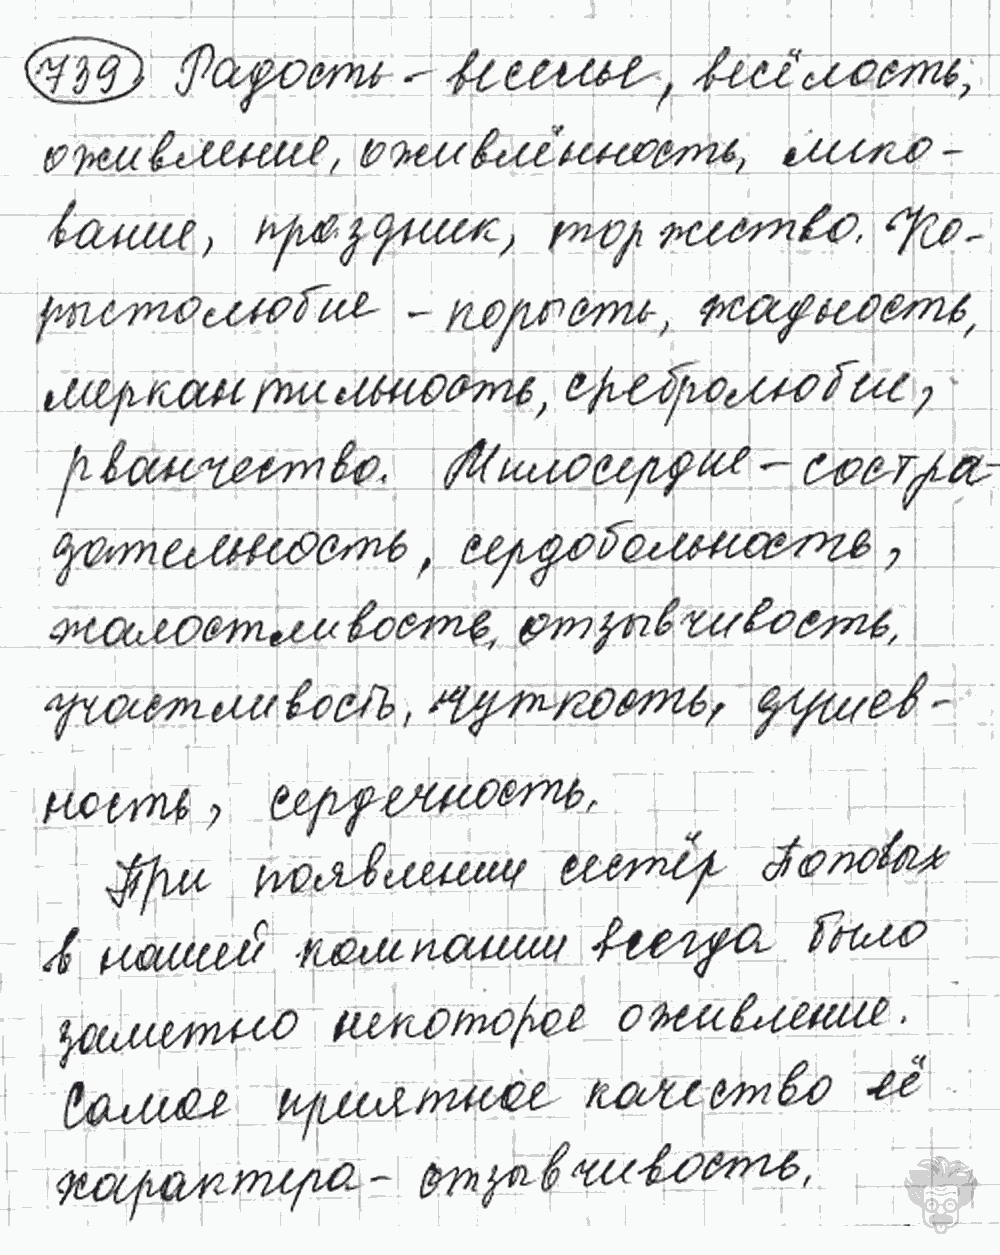 739 Радость – веселье, весёлость,
оживление, оживлённость, лико-
вание, праздник, торжество. Ко-
рыстолюбие – корысть, жадность,
меркантильность, сребролюбие,
рванчество. Милосердие – состра-
дательность, сердобольность,
жалостливость, отзывчивость,
участливость, чуткость, душев-
ность, сердечность.
При появлении сестёр Поповых
в нашей компании всегда было
заметно некоторое оживление.
Самое приятное качество её
характера – отзывчивость.